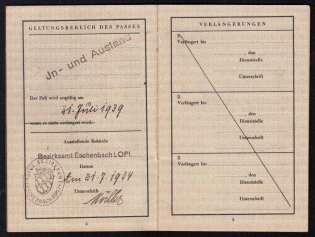 GELTUNGSBEREICH DES PASSES
Jn- und Ausland
Der Paß wird ungültig am
21. Juli 1939
wenn er nicht verlängert wird.
Ausstellende Behörde
Bezirksamt Eschenbach i.OPf.
Datum
den 21.7.1934
Unterschrift
Müller
VERLÄNGERUNGEN
1.
Verlängert bis
, den
Dienststelle
Unterschrift
2.
Verlängert bis
, den
Dienststelle
Unterschrift
3.
Verlängert bis
, den
Dienststelle
Unterschrift